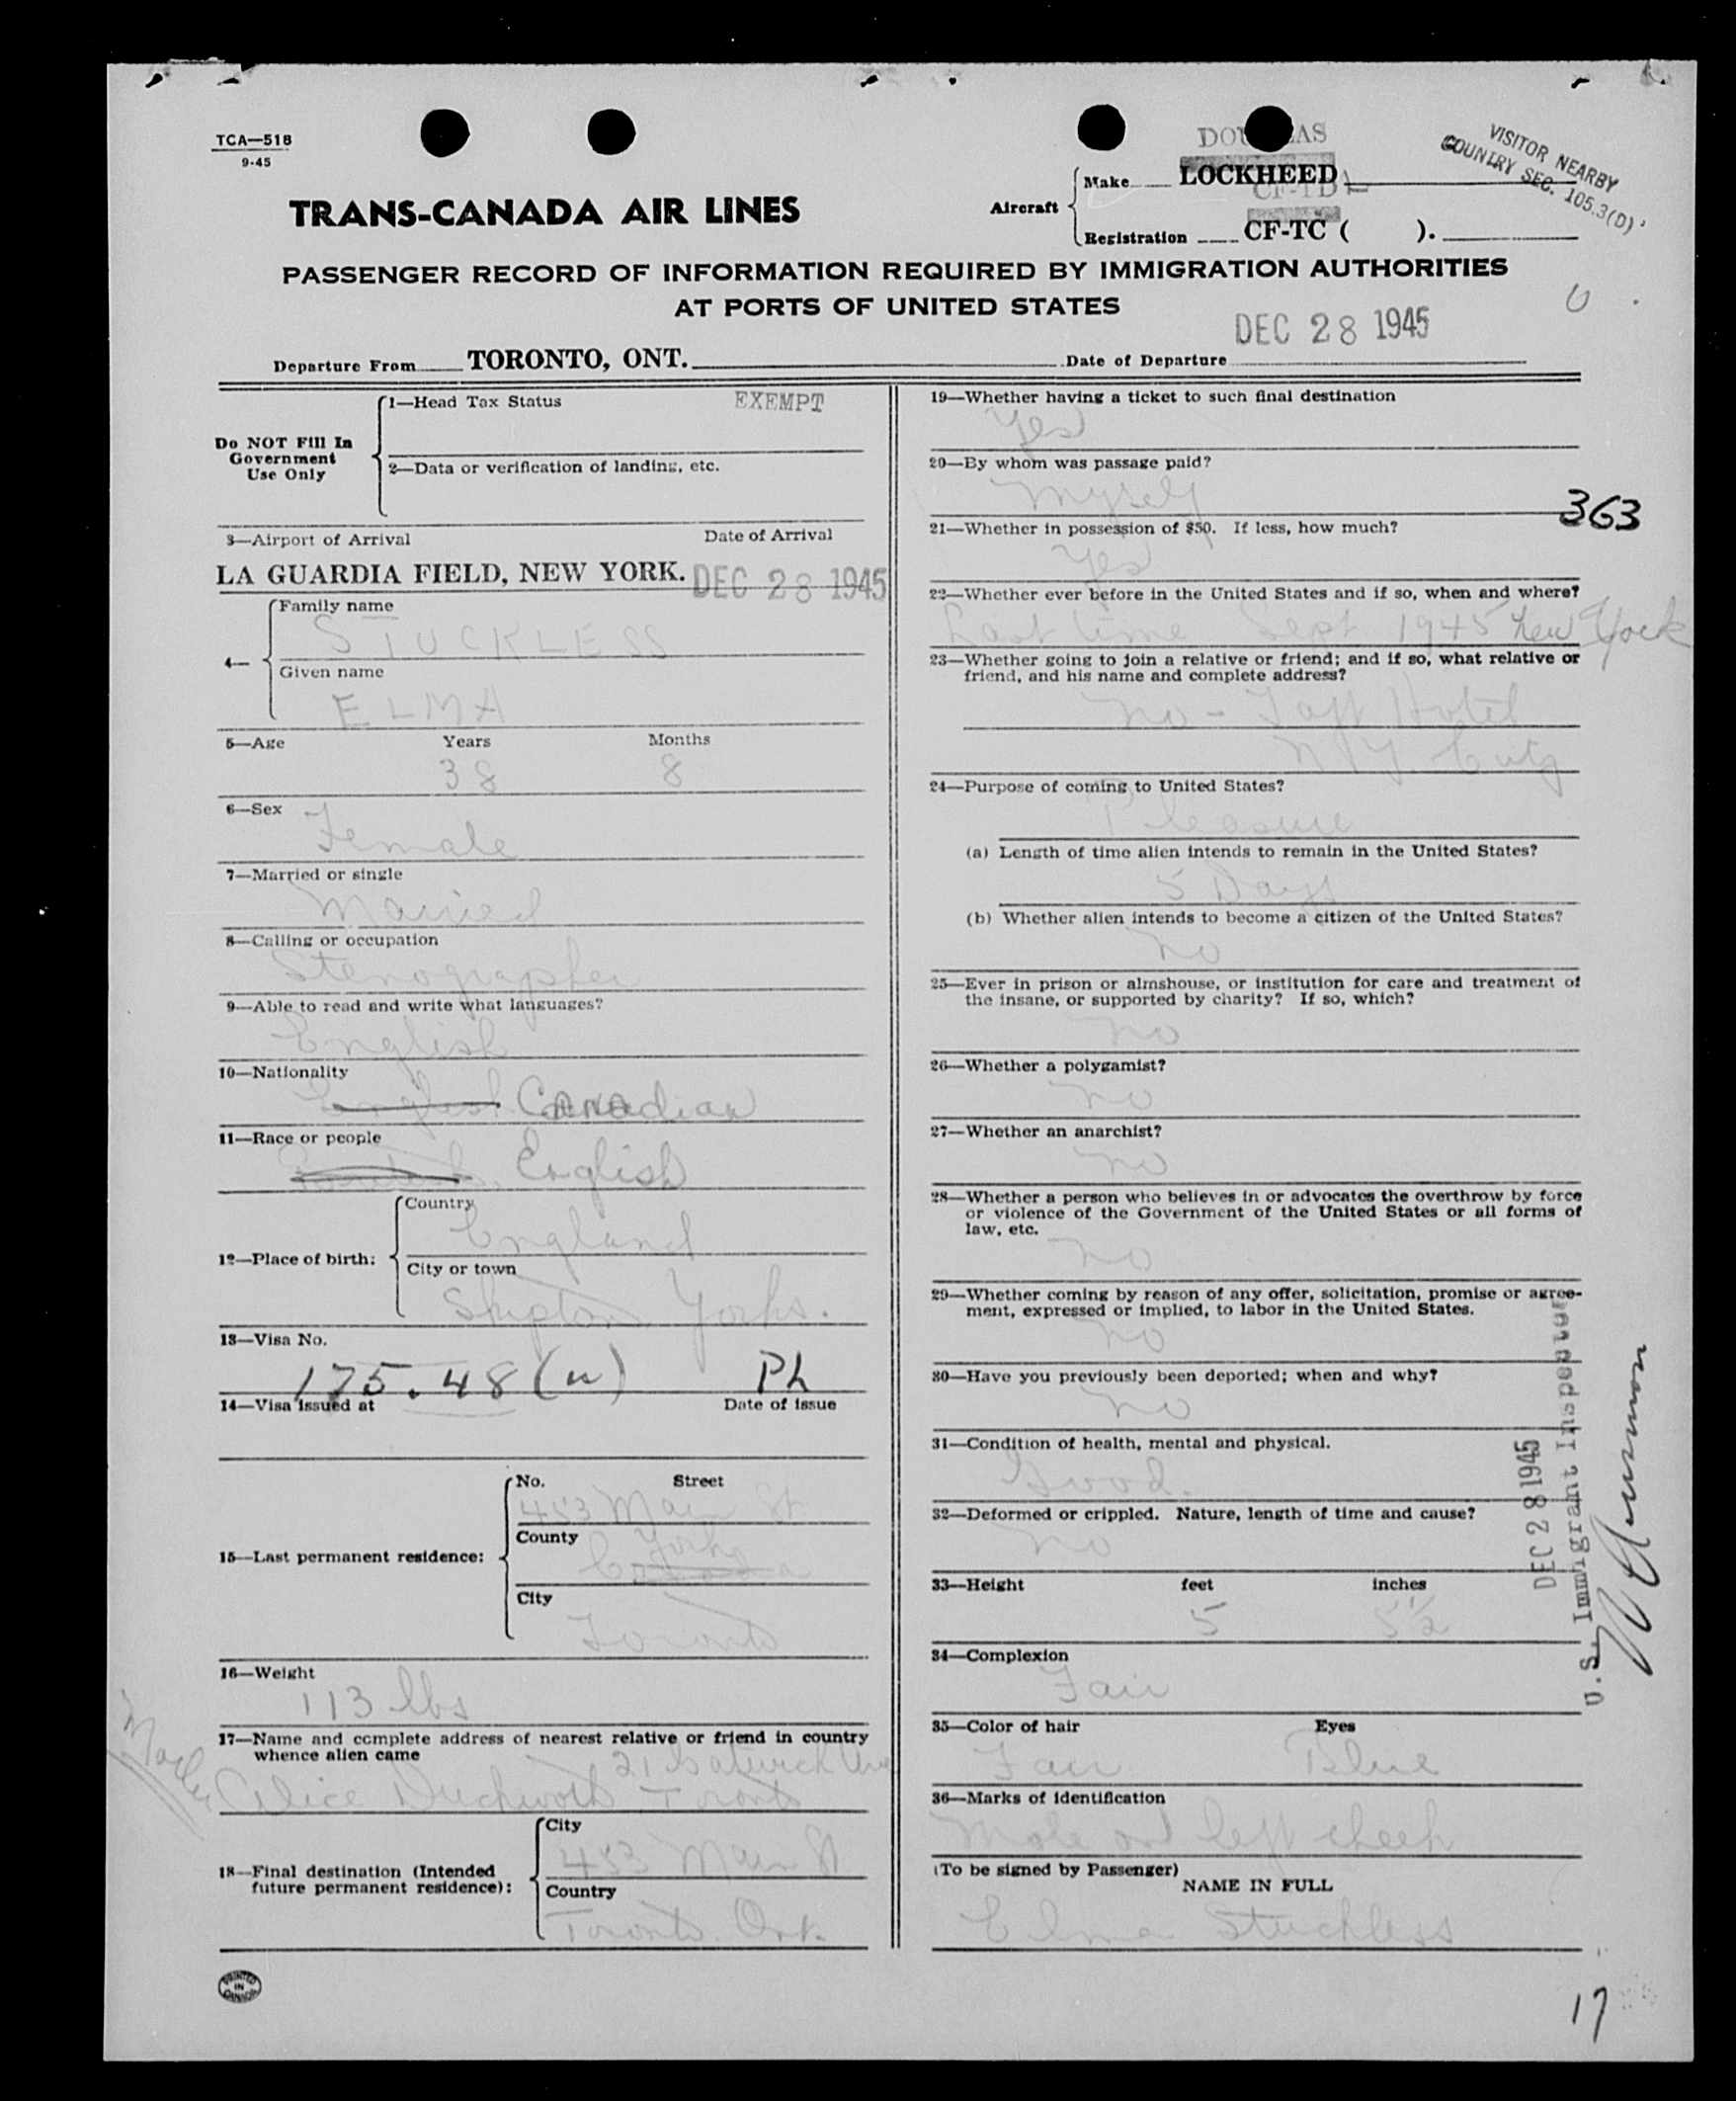 TCA—518
9-45
DOUGLAS
VISITOR NEARBY
COUNTRY SEC. 105.3(D)
Aircraft
Make LOCKHEED
CF-T
Registration CF-TC ( ).
TRANS-CANADA AIR LINES
PASSENGER RECORD OF INFORMATION REQUIRED BY IMMIGRATION AUTHORITIES
AT PORTS OF UNITED STATES
DEC 28 1945
Departure From TORONTO, ONT. Date of Departure
Do NOT Fill In
Government
Use Only
1—Head Tax Status EXEMPT
2—Data or verification of landing, etc.
3—Airport of Arrival Date of Arrival
LA GUARDIA FIELD, NEW YORK. DEC 28 1945
4—
Family name
STUCKLESS
Given name
ELMA
5—Age Years Months
38 8
6—Sex
Female
7—Married or single
Married
8—Calling or occupation
Stenographer
9—Able to read and write what languages?
English
10—Nationality
English Canadian
11—Race or people
English
12—Place of birth:
Country
England
City or town
Skipton Yorks.
13—Visa No.
175.48 (a) Ph
14—Visa issued at Date of issue
15—Last permanent residence:
No. Street
453 Main St
County
York
Canada
City
Toronto
16—Weight
113 lbs
17—Name and complete address of nearest relative or friend in country
whence alien came
Mother Alice Duckworth 21 Ave
Toronto
18—Final destination (Intended
future permanent residence):
City
453 Main St
Country
Toronto. Ont.
PRINTED
IN
CANADA
19—Whether having a ticket to such final destination
Yes
20—By whom was passage paid?
Myself
363
21—Whether in possession of $50. If less, how much?
Yes
22—Whether ever before in the United States and if so, when and where?
Last time Sept 1945 New York
23—Whether going to join a relative or friend; and if so, what relative or
friend, and his name and complete address?
No - Taft Hotel
N Y City
24—Purpose of coming to United States?
Pleasure
(a) Length of time alien intends to remain in the United States?
5 Days
(b) Whether alien intends to become a citizen of the United States?
No
25—Ever in prison or almshouse, or institution for care and treatment of
the insane, or supported by charity? If so, which?
No
26—Whether a polygamist?
No
27—Whether an anarchist?
No
28—Whether a person who believes in or advocates the overthrow by force
or violence of the Government of the United States or all forms of
law, etc.
No
29—Whether coming by reason of any offer, solicitation, promise or agree-
ment, expressed or implied, to labor in the United States.
No
30—Have you previously been deported; when and why?
No
31—Condition of health, mental and physical.
Good.
32—Deformed or crippled. Nature, length of time and cause?
No
33—Height feet inches
5 5 1/2
34—Complexion
Fair
35—Color of hair Eyes
Fair Blue
36—Marks of identification
Mole on left cheek
(To be signed by Passenger)
NAME IN FULL
Elma Stuckless
DEC 28 1945
U.S. Immigrant Inspector
17